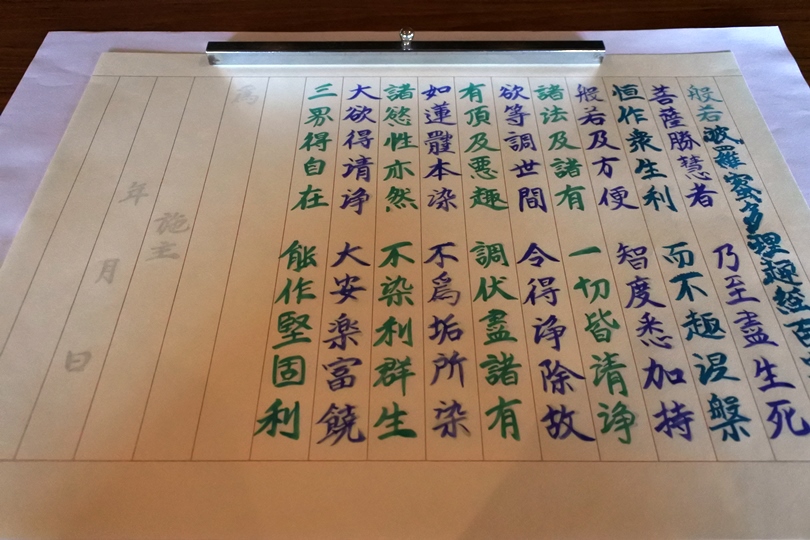 般若波羅蜜多理趣経百
菩薩勝慧者 乃至盡生死
恒作衆生利 而不趣涅槃
般若及方便 智度悉加持
諸法及諸有 一切皆清浄
欲等調世間 令得浄除故
有頂及悪趣 調伏盡諸有
如蓮軆本染 不爲垢所染
諸慾性亦然 不染利群生
大欲得清浄 大安楽富饒
三界得自在 能作堅固利
為
施主
年 月 日